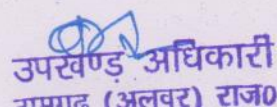 उपखण्ड अधिकारी
रामगढ (अलवर) राज0